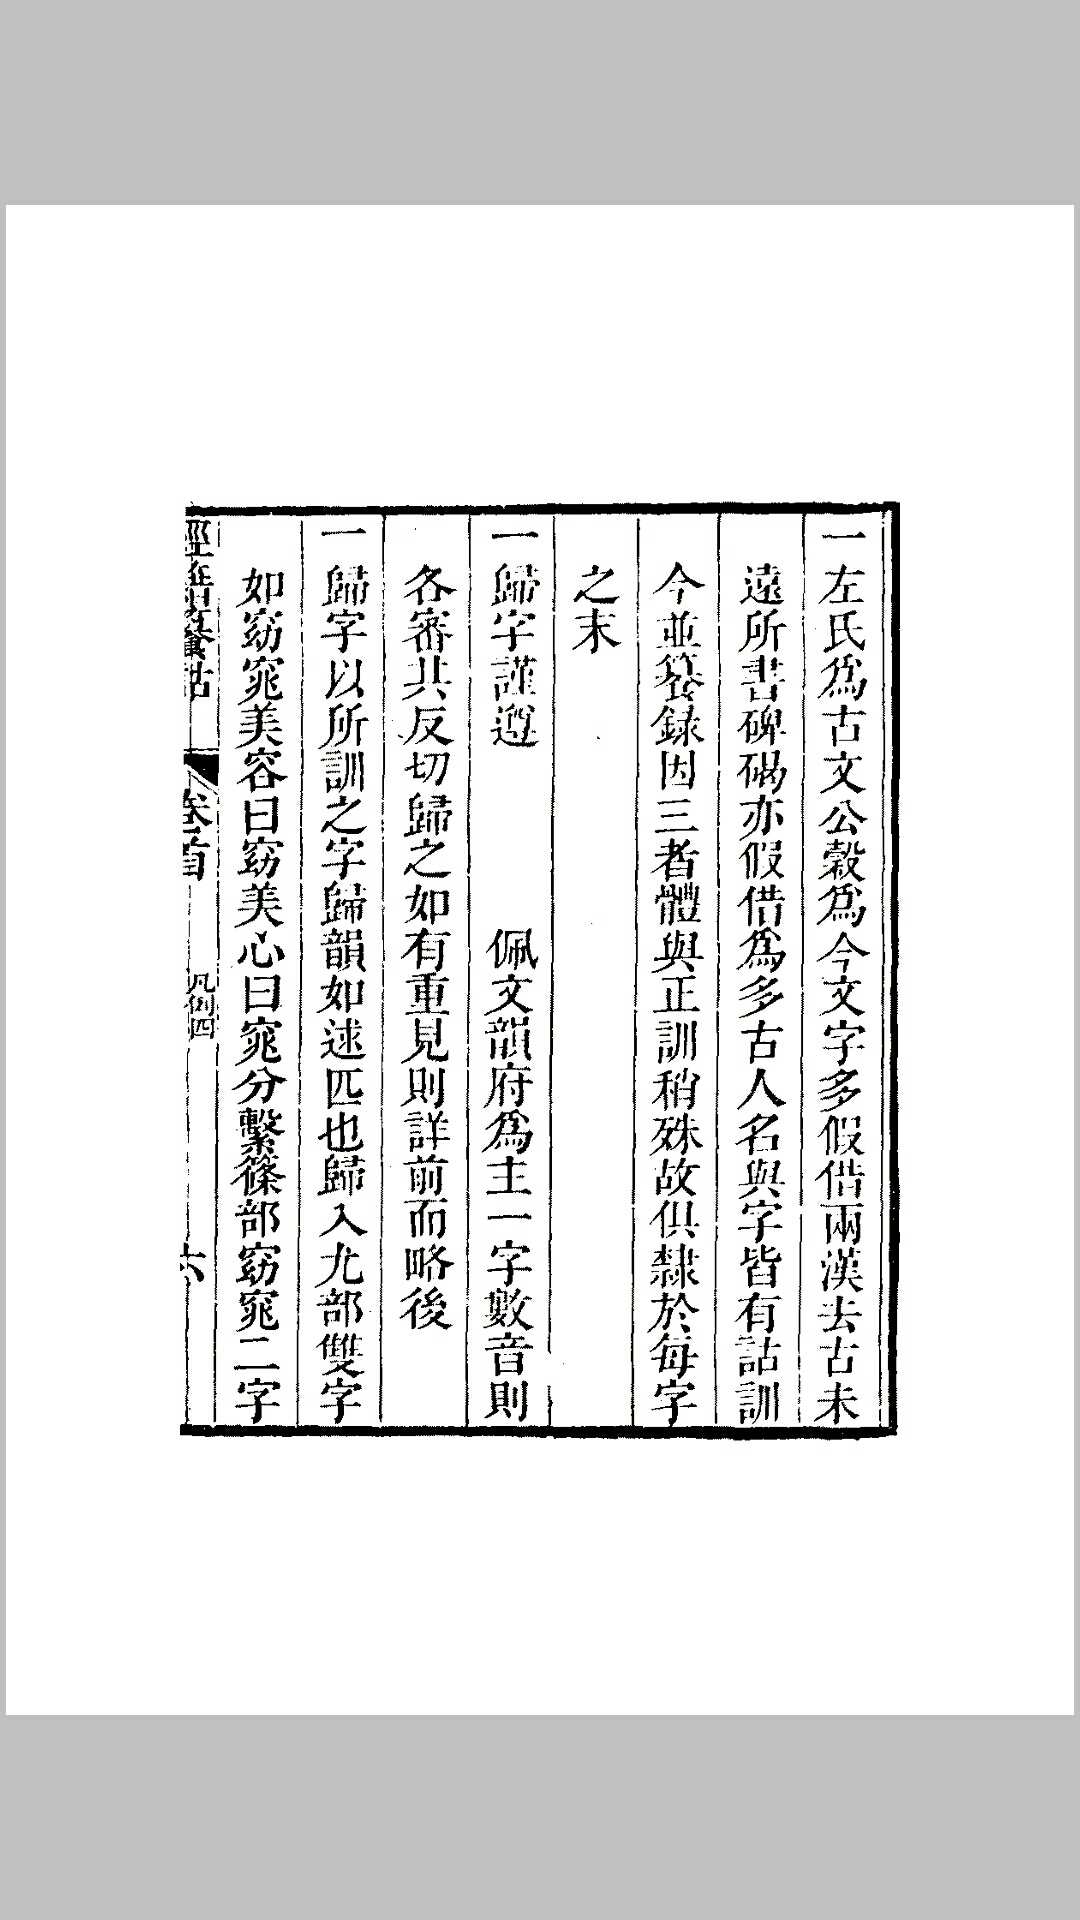 一左氏爲古文公穀爲今文字多假借兩漢去古未
遠所書碑碣亦假借爲多古人名與字皆有詁訓
今並籑錄因三者體與正訓稍殊故俱隸於每字
之末
一歸字謹遵　　　　佩文韻府爲主一字數音則
各審共反切歸之如有重見則詳前而略後
一歸字以所訓之字歸韻如逑匹也歸入尤部雙字
如窈窕美容曰窈美心曰窕分繫篠部窈窕二字
經籍籑詁　卷首　凡例四　六